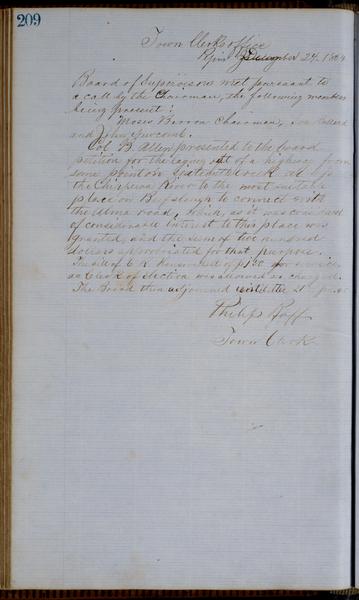 209
Town Clerks office
December 24. 18
Board of Supervisors met, pursuant to
a call by the Chairman, the following members
being present:
Moses Chairman,
and John Newcomb.
Col. B. Allen presented to the board
petition for the laying out of a highway from
some point on Creek
the Chippewa River to the most suitable
place on to connect with
the road, which, as it was
of considerable interest to this place was
granted, and the sum of two hundred
dollars appropriated for that purpose.
The bill of of for services
as Clerk of election was allowed as charged.
The Board then adjourned until the 21
Philip
Town Clerk